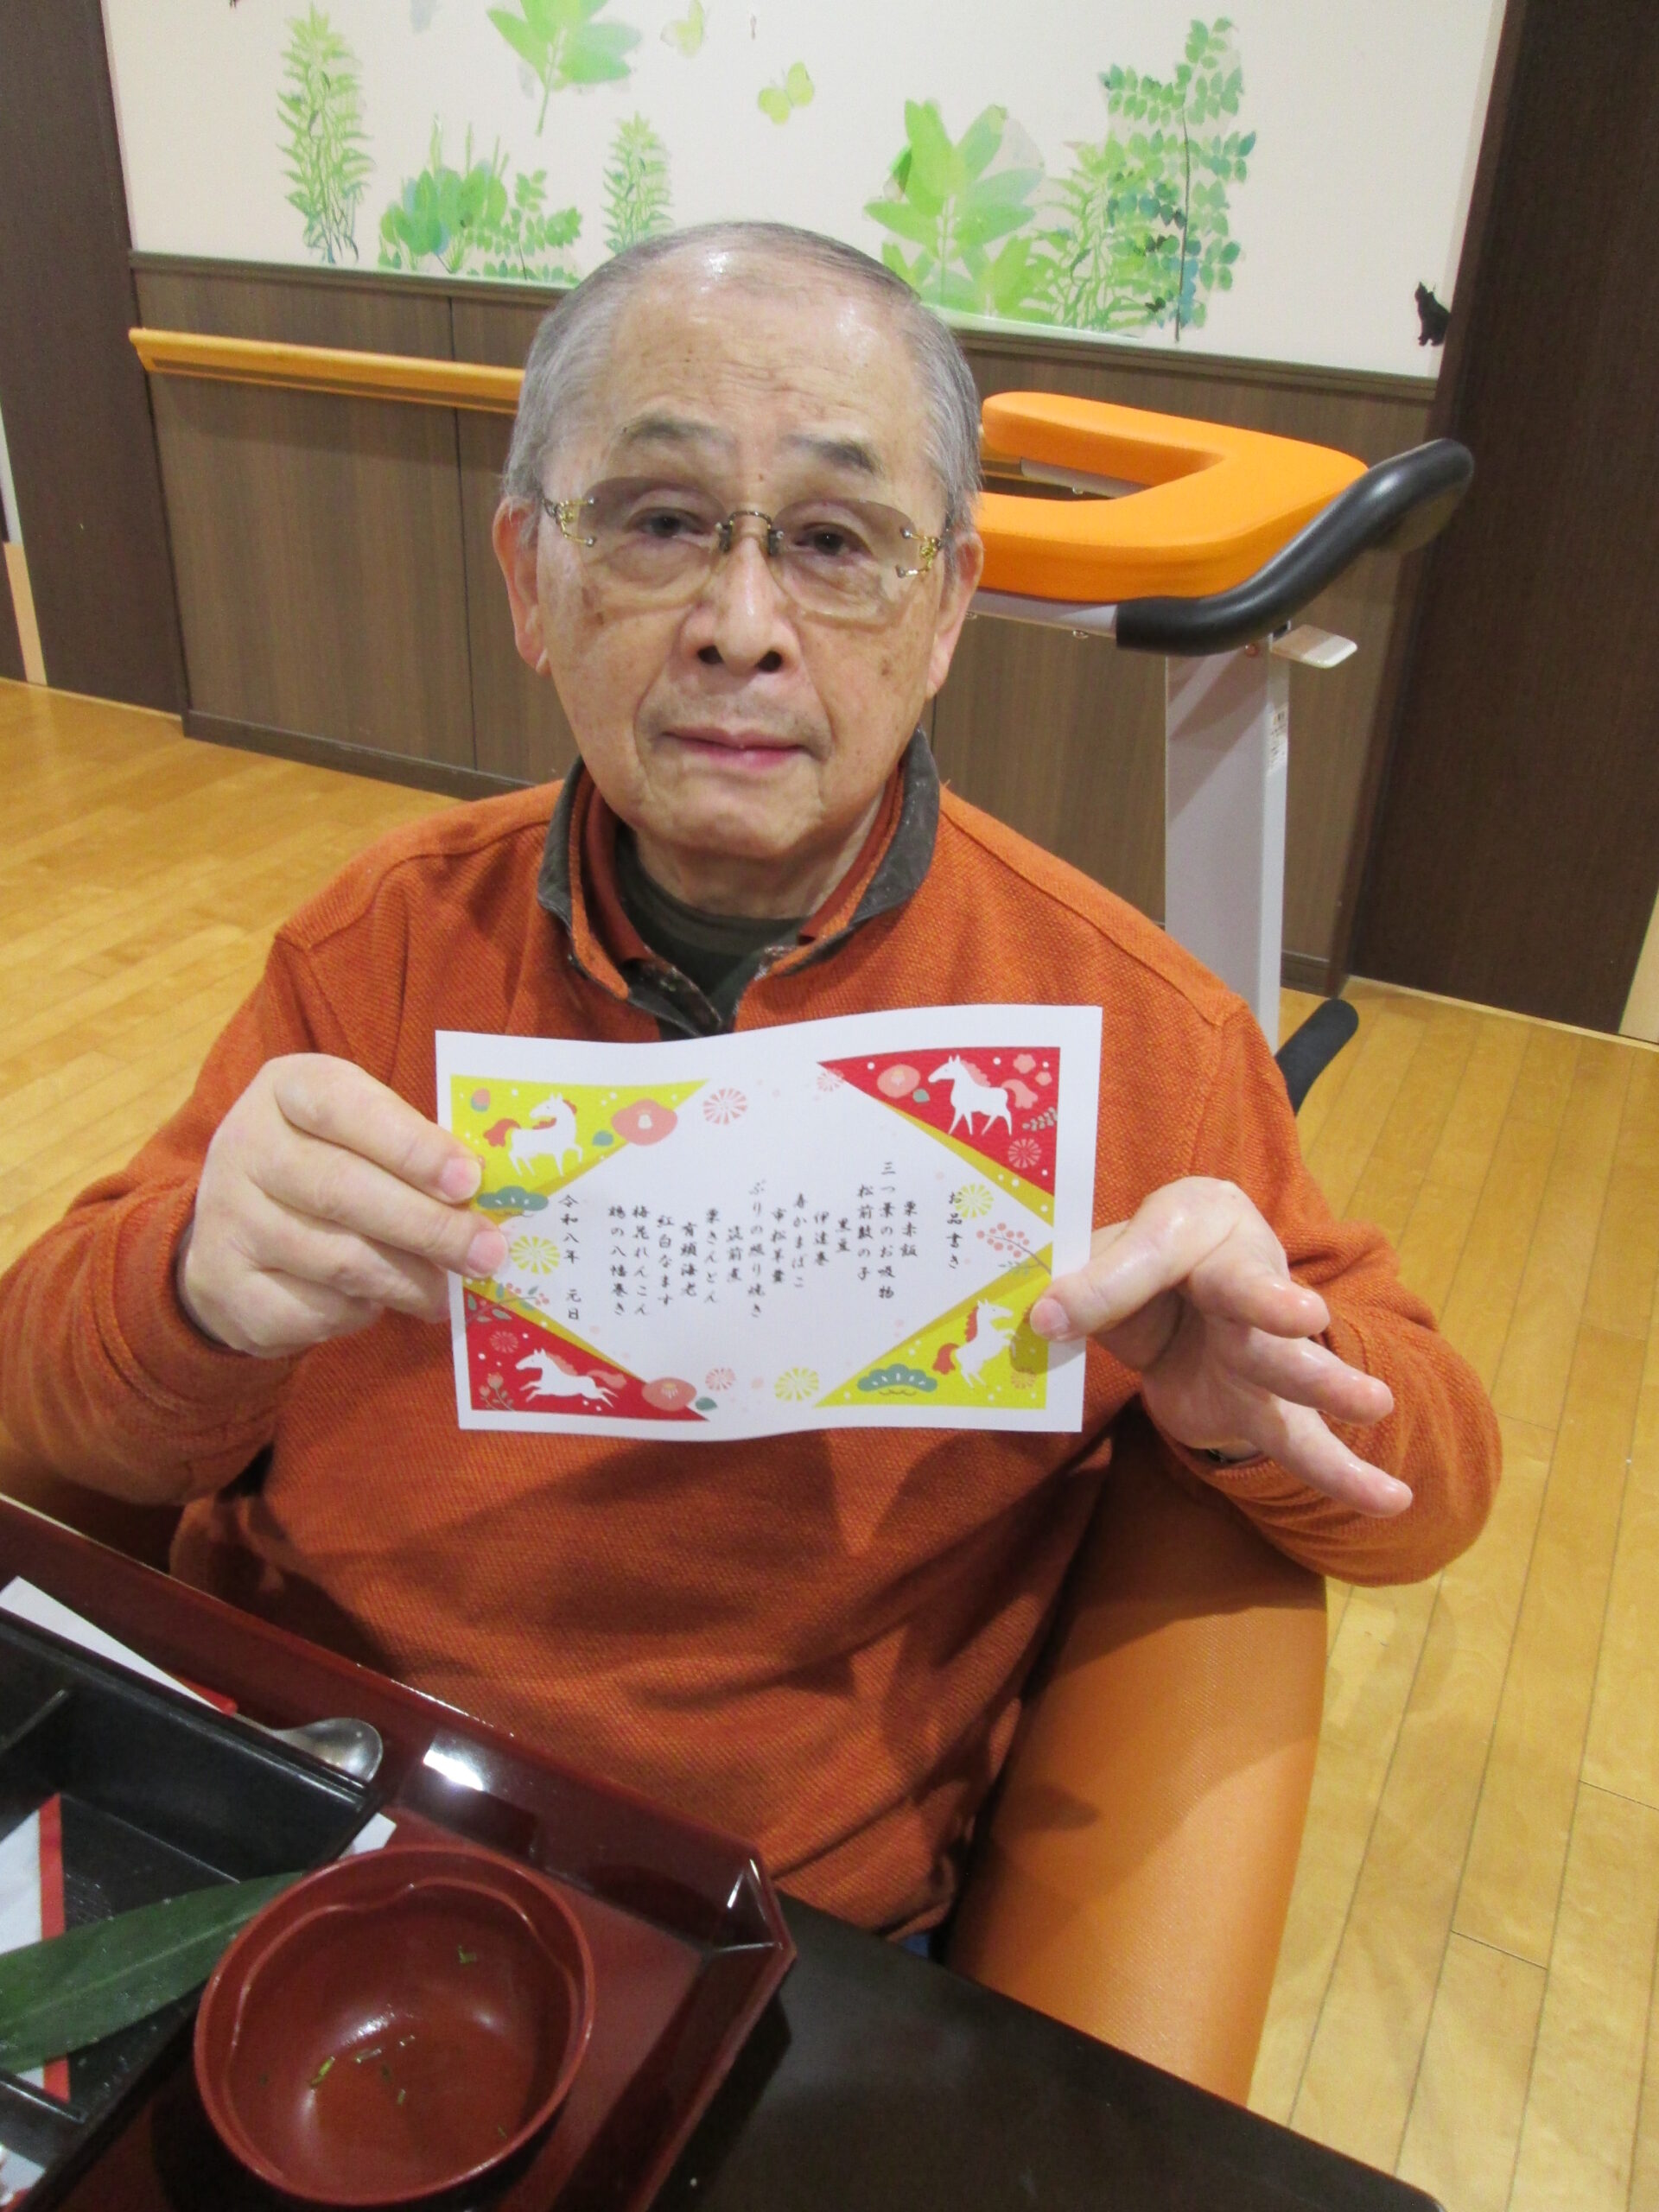 お品書き
栗赤飯
三つ葉のお吸物
松前数の子
黒豆
伊達巻
寿かまぼこ
市松羊羹
ぶりの照り焼き
筑前煮
栗きんとん
有頭海老
紅白なます
梅花れんこん
鶏の八幡巻き
令和八年 元日